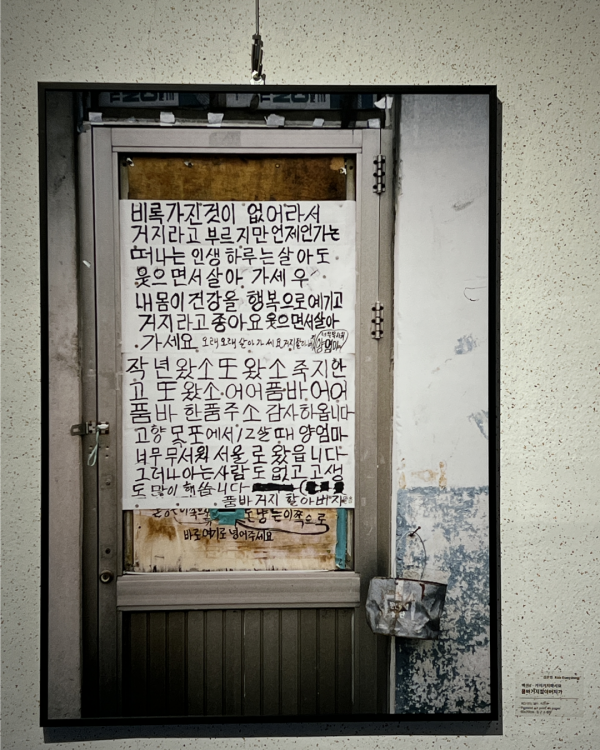 비록 가진것이 없어라서
거지라고 부르지만 언제인가는
떠나는 인생 하루는 살아도
웃으면서 살아. 가세 우
내몸이 건강을 행복으로 예기고
거지라고 좋아요 웃으면서 살아
가세요 오래오래 살아가세요
작년 왔소 또 왔소 죽지안
고 또 왔소. 어어 품바 어어
품바 한품주소 감사하옵니다
고향 못포에서 12살 때 양엄마
너무 무서워 서울로 왔읍니다
그러나 아는사람도 없고 고생
도 많이 했습니다
품바거지 할아버지
도 넣는 이쪽으로
바로 여기로 넣어주세요